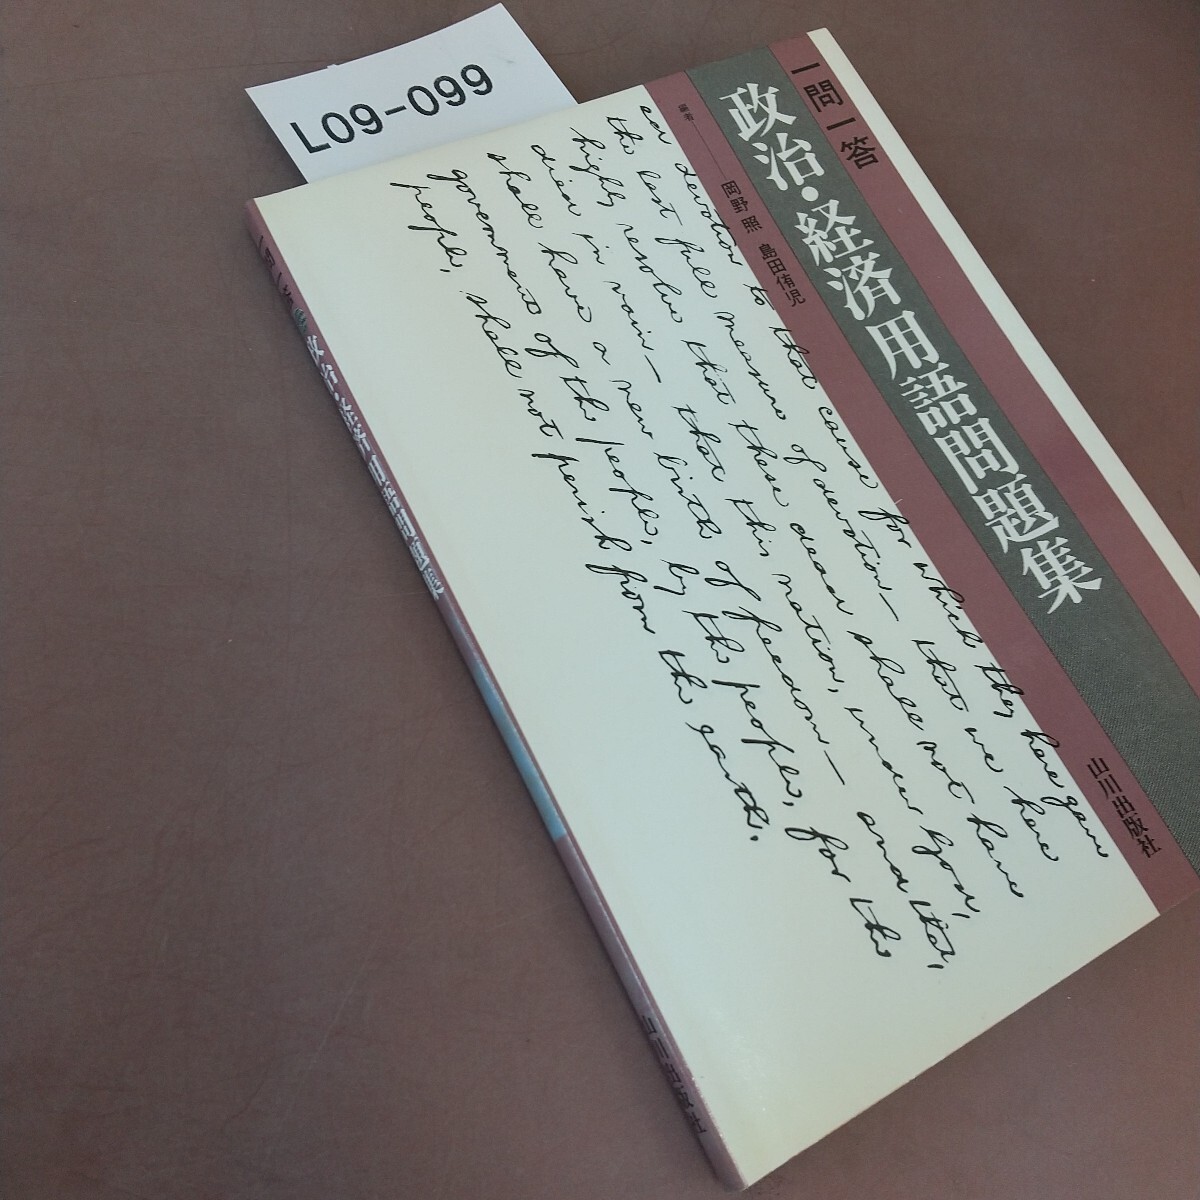 L09-099
一問一答
政治・経済用語問題集
編者
岡野 照 島田侑児
山川出版社
devotion to that cause for which they here gave
the last full measure of devotion— that we here
highly resolve that these dead shall not have
died in vain— that this nation, under God,
shall have a new birth of freedom— and that,
government of the people, by the people, for the
people, shall not perish from the earth.
政治・経済用語問題集